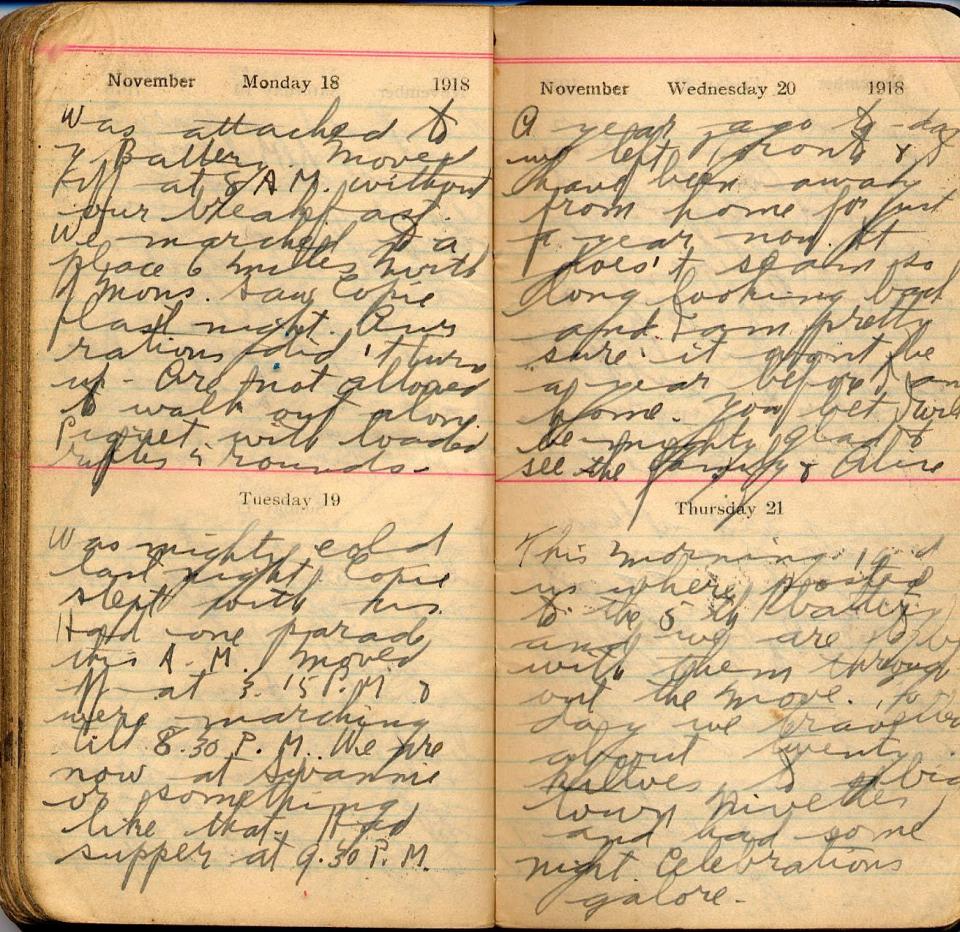 November Monday 18 1918
Was attached to
y Battery. Moved
off at 8 A.M. without
our breakfast.
We marched to a
place 6 miles north
of Mons. Saw Copie
last night. Ours
rations did't turn
up. Are not allowed
to walk out alone.
Piquet with loaded
rifles & rounds.
Tuesday 19
Was mighty cold
last night. Copie
slept with his.
Had one parade
this A.M. moved
off at 3.15 P.M. &
were marching
till 8.30 P.M. We are
now at
or something
like that. Had
supper at 9.30 P.M.
November Wednesday 20 1918
A year ago to-day
we left &
have been away
from home for just
a year now. It
does't seam so
long looking back
and I am pretty
sure it wont be
a year before I am
home. You bet I will
be mighty glad to
see the family & Alice
Thursday 21
This morning 19 of
us where posted
to the 5th battery
and we are to be
with them through
out the move. To
day we travelled
about twenty
to a big
town Nivelles
and had some
night. Celebrations
galore.